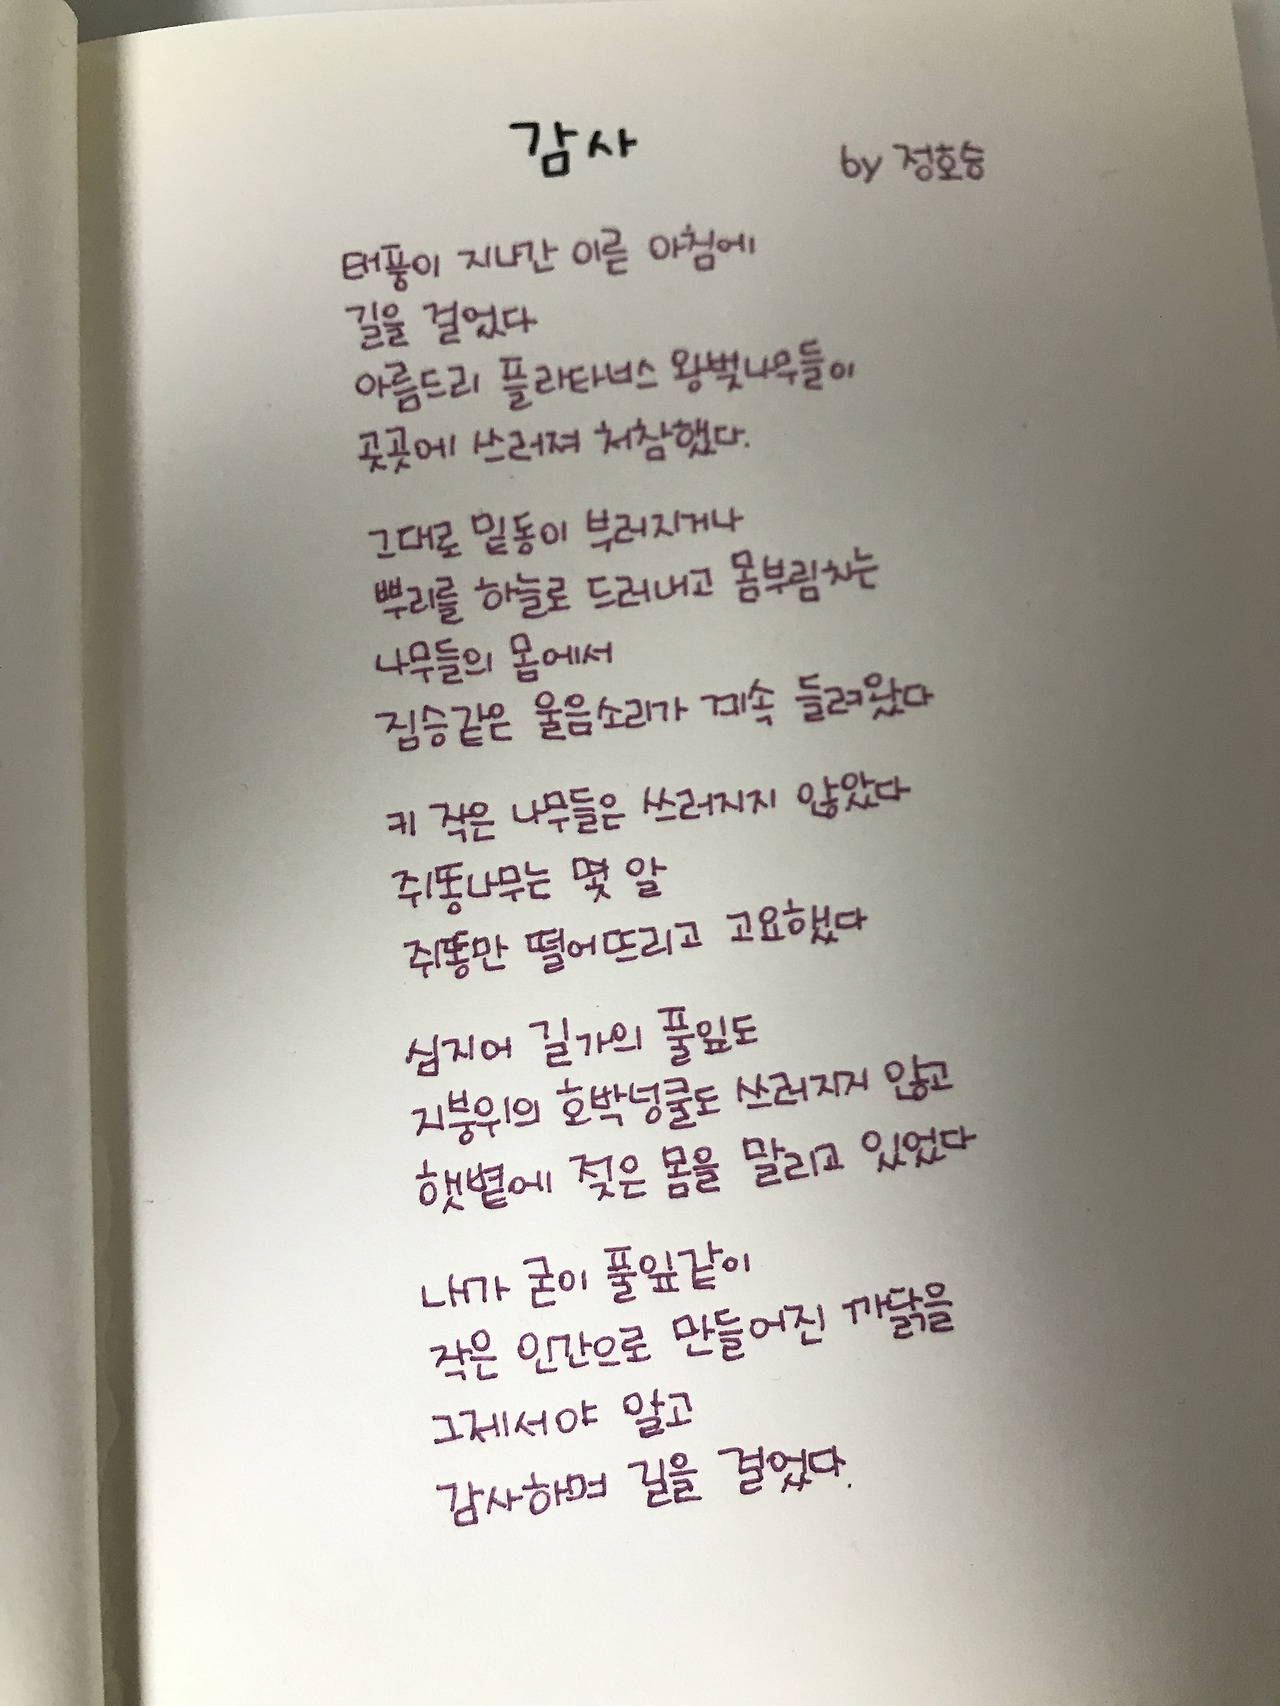 감사
by 정호승
태풍이 지나간 이른 아침에
길을 걸었다
아름드리 플라타너스 왕벚나무들이
곳곳에 쓰러져 처참했다.
그대로 밑동이 부러지거나
뿌리를 하늘로 드러내고 몸부림치는
나무들의 몸에서
짐승같은 울음소리가 계속 들려왔다
키 작은 나무들은 쓰러지지 않았다
쥐똥나무는 몇 알
쥐똥만 떨어뜨리고 고요했다
심지어 길가의 풀잎도
지붕위의 호박넝쿨도 쓰러지지 않고
햇볕에 젖은 몸을 말리고 있었다
내가 굳이 풀잎같이
작은 인간으로 만들어진 까닭을
그제서야 알고
감사하며 길을 걸었다.